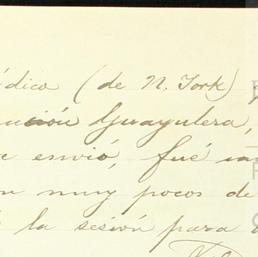 édico (de N. York)
ción Guayulera,
e envió, fué in
n muy pocos de
la sesión para